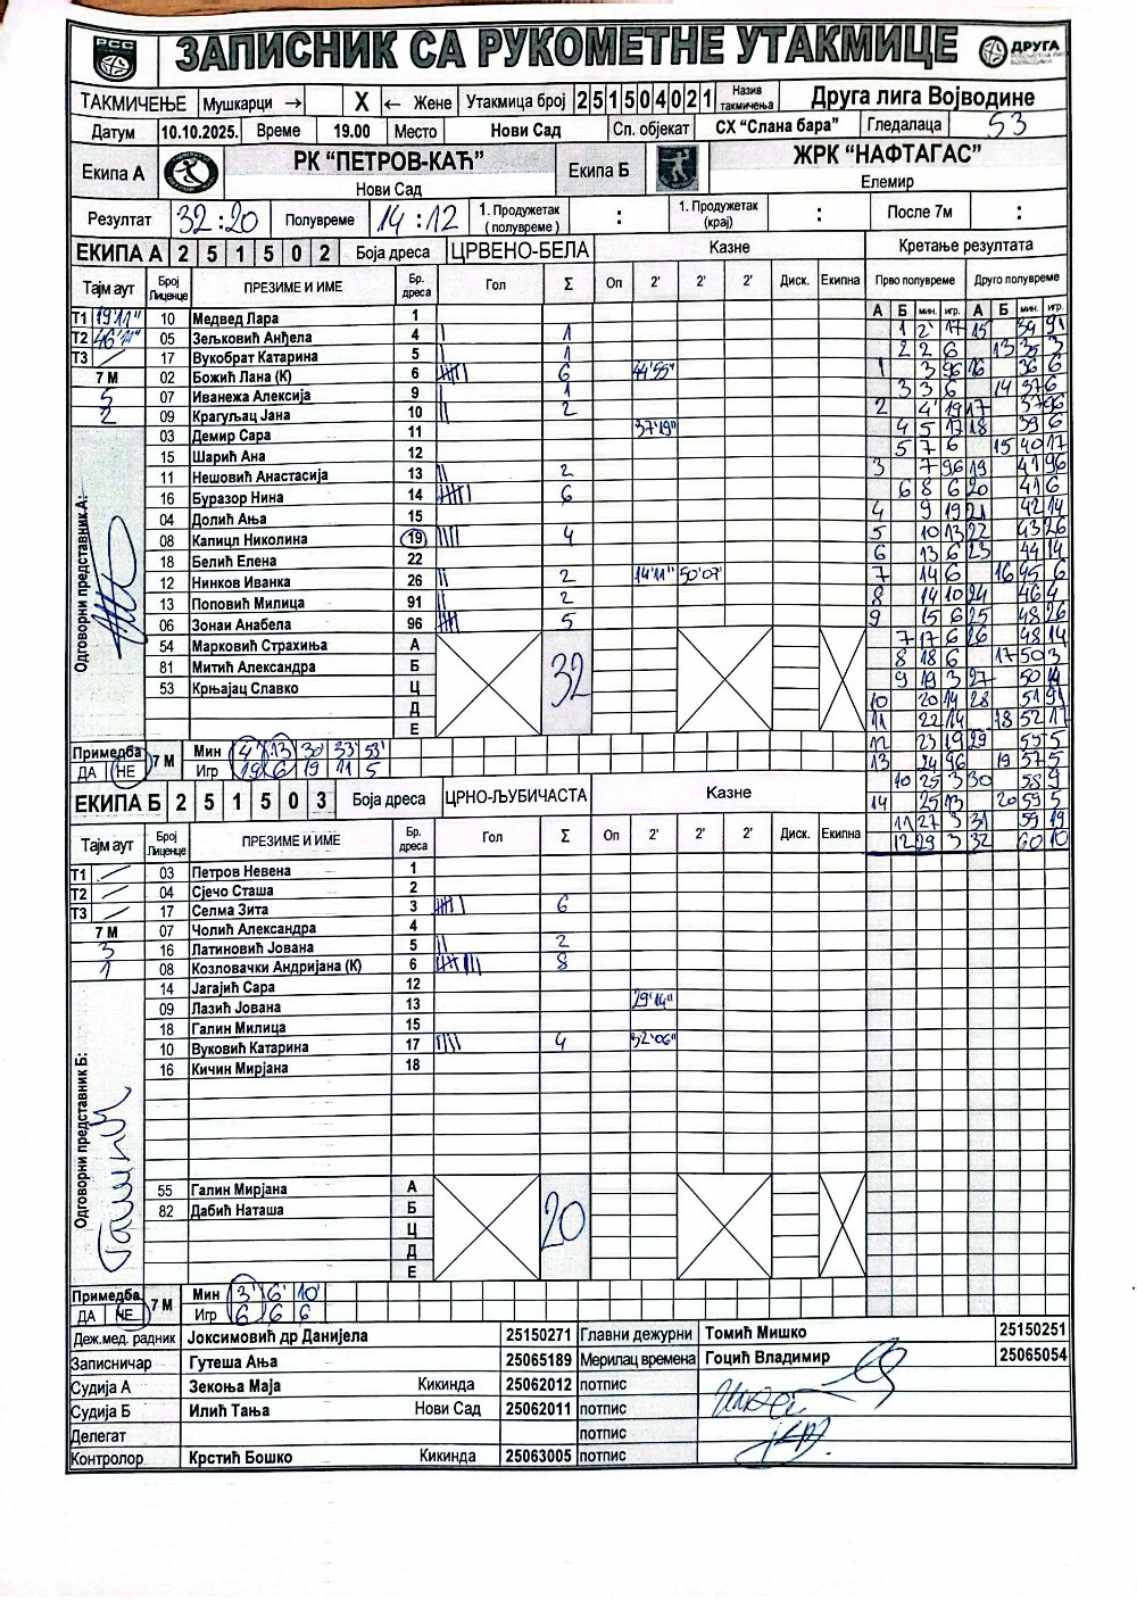 РСС ЗАПИСНИК СА РУКОМЕТНЕ УТАКМИЦЕ ДРУГА
ТАКМИЧЕЊЕ Мушкарци → X ← Жене Утакмица број 251504021 Назив такмичења Друга лига Војводине
Датум 10.10.2025. Време 19.00 Место Нови Сад Сп. објекат СХ “Слана бара” Гледалаца 53
Екипа А РК “ПЕТРОВ-КАЋ” Нови Сад Екипа Б ЖРК “НАФТАГАС” Елемир
Резултат 32:20 Полувреме 14:12 1. Продужетак (полувреме) : 1. Продужетак (крај) : После 7м :
ЕКИПА А 251502 Боја дреса ЦРВЕНО-БЕЛА Казне Кретање резултата
Тајм аут Број Лиценце ПРЕЗИМЕ И ИМЕ Бр. дреса Гол Σ Оп 2' 2' 2' Диск. Екипна Прво полувреме Друго полувреме
А Б мин. игр. А Б мин. игр.
Т1 19'11" 10 Медвед Лара 1
Т2 46'11" 05 Зељковић Анђела 4 1
Т3 / 17 Вукобрат Катарина 5 1
7 М 02 Божић Лана (К) 6 6 44'55"
5 07 Иванежа Алексија 9 1
2 09 Крагуљац Јана 10 2
03 Демир Сара 11 37'19"
15 Шарић Ана 12
11 Нешовић Анастасија 13 2
16 Буразор Нина 14 6
04 Долић Ања 15
08 Капицл Николина 19 4
18 Белић Елена 22
12 Нинков Иванка 26 2 14'11" 50'07"
13 Поповић Милица 91 2
06 Зонаи Анабела 96 5
54 Марковић Страхиња А
81 Митић Александра Б
53 Крњајац Славко Ц
Д
Е
32
Одговорни представник А:
Примедба ДА НЕ 7 М Мин 4' 13' 30' 33' 53'
Игр 19 6 19 11 5
1 2' 17 15 34 91
2 2 6 13 35 3
1 3 96 16 36 6
3 3 6 14 37 6
2 4' 19 17 37 96
4 5 17 18 39 6
5 7 6 15 40 17
3 7 96 19 41 96
6 8 6 20 41 6
4 9 19 21 42 14
5 10 13 22 43 26
6 13 6 23 44 14
7 14 6 16 45 6
8 14 10 24 46 4
9 15 6 25 48 26
7 17 6 26 48 14
8 18 6 17 50 3
9 19 3 27 50 14
10 20 14 28 51 91
11 22 14 18 52 17
12 23 19 29 55 5
13 24 96 19 57 5
10 25 3 30 58 9
14 25 13 20 59 5
11 27 3 31 59 19
12 29 3 32 60 10
ЕКИПА Б 251503 Боја дреса ЦРНО-ЉУБИЧАСТА Казне
Тајм аут Број Лиценце ПРЕЗИМЕ И ИМЕ Бр. дреса Гол Σ Оп 2' 2' 2' Диск. Екипна
Т1 / 03 Петров Невена 1
Т2 / 04 Сјечо Сташа 2
Т3 / 17 Селма Зита 3 6
7 М 07 Чолић Александра 4
3 16 Латиновић Јована 5 2
1 08 Козловачки Андријана (К) 6 8
14 Јагајић Сара 12
09 Лазић Јована 13 29'14"
18 Галин Милица 15
10 Вуковић Катарина 17 4 32'06"
16 Кичин Мирјана 18
55 Галин Мирјана А
82 Дабић Наташа Б
Ц
Д
Е
20
Одговорни представник Б:
Примедба ДА НЕ 7 М Мин 3' 6' 10'
Игр 6 6 6
Деж.мед. радник Јоксимовић др Данијела 25150271 Главни дежурни Томић Мишко 25150251
Записничар Гутеша Ања 25065189 Мерилац времена Гоцић Владимир 25065054
Судија А Зекоња Маја Кикинда 25062012 потпис
Судија Б Илић Тања Нови Сад 25062011 потпис
Делегат потпис
Контролор Крстић Бошко Кикинда 25063005 потпис